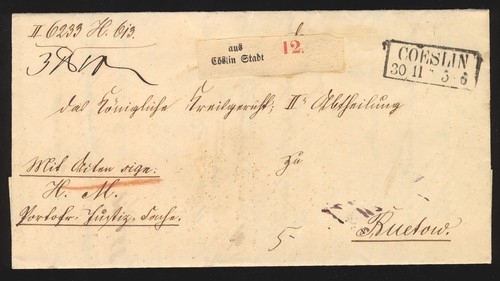 II. 6233 H. 613.
aus
Cöslin Stadt
12.
COESLIN
30 11 5-6
das Königliche Kreisgericht, II Abtheilung
Mit Akten
zu
H. M.
Portofr. Justiz-Sache.
5
Ruetow.